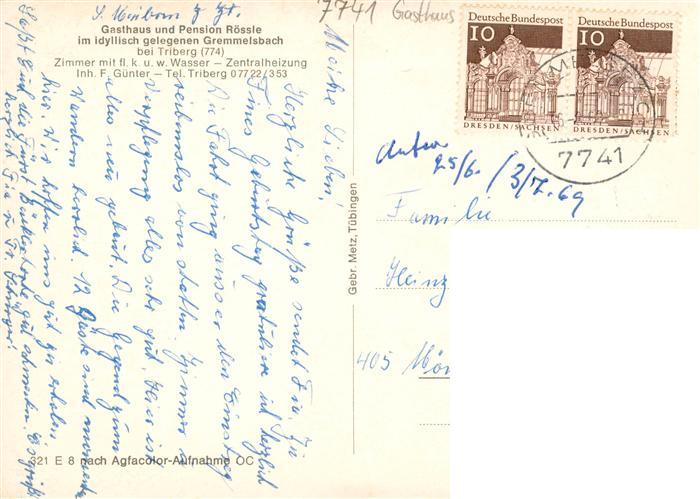 7741 Gasthaus
Gasthaus und Pension Rössle
im idyllisch gelegenen Gremmelsbach
bei Triberg (774)
Zimmer mit fl. k. u. w. Wasser – Zentralheizung
Inh. F. Günter – Tel. Triberg 07722/353
Deutsche Bundespost
10
DRESDEN/SACHSEN
Deutsche Bundespost
10
DRESDEN/SACHSEN
7741
25/6. / 3/7. 69
Familie
Heinz
405
Gebr. Metz, Tübingen
Meine Lieben!
Herzliche Grüße sendet
Geburtstag gratuliere ich herzlich
Die Fahrt ging ausser den Einstieg
reibungslos von statten. Zimmer u.
Verpflegung alles sehr gut, hier ist
alles neu gebaut. Die Gegend zum
Wandern herrlich. 12 Gäste sind momentan
hier. Wir hoffen uns gut zu erholen.
321 E 8 nach Agfacolor-Aufnahme OC